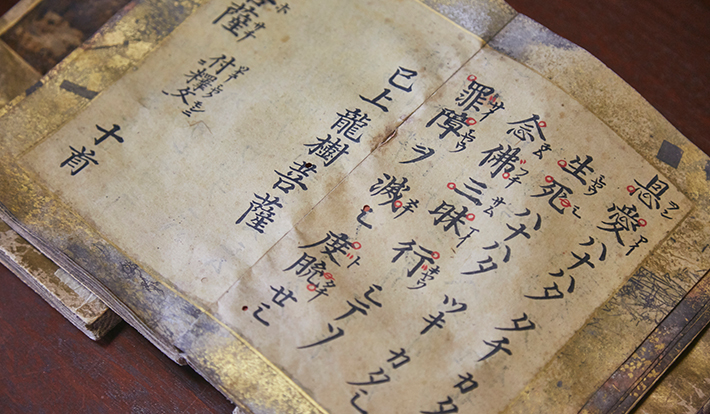 恩愛ハナハタ タチカタク
生死ハナハタ ツキカタシ
念佛三昧行シテソ
罪障ヲ滅シ度脱セシ
已上龍樹菩薩
菩薩 付釋文
十首